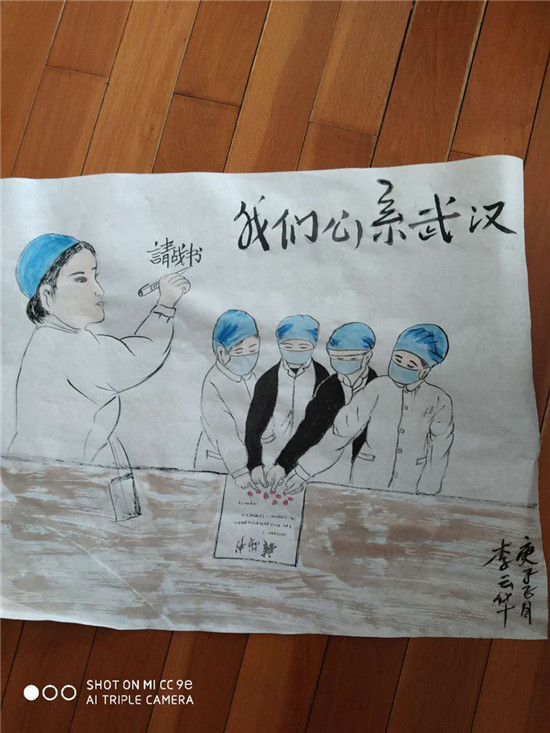 我们心系武汉
請战书
庚子正月
李云华
SHOT ON MI CC 9e
AI TRIPLE CAMERA